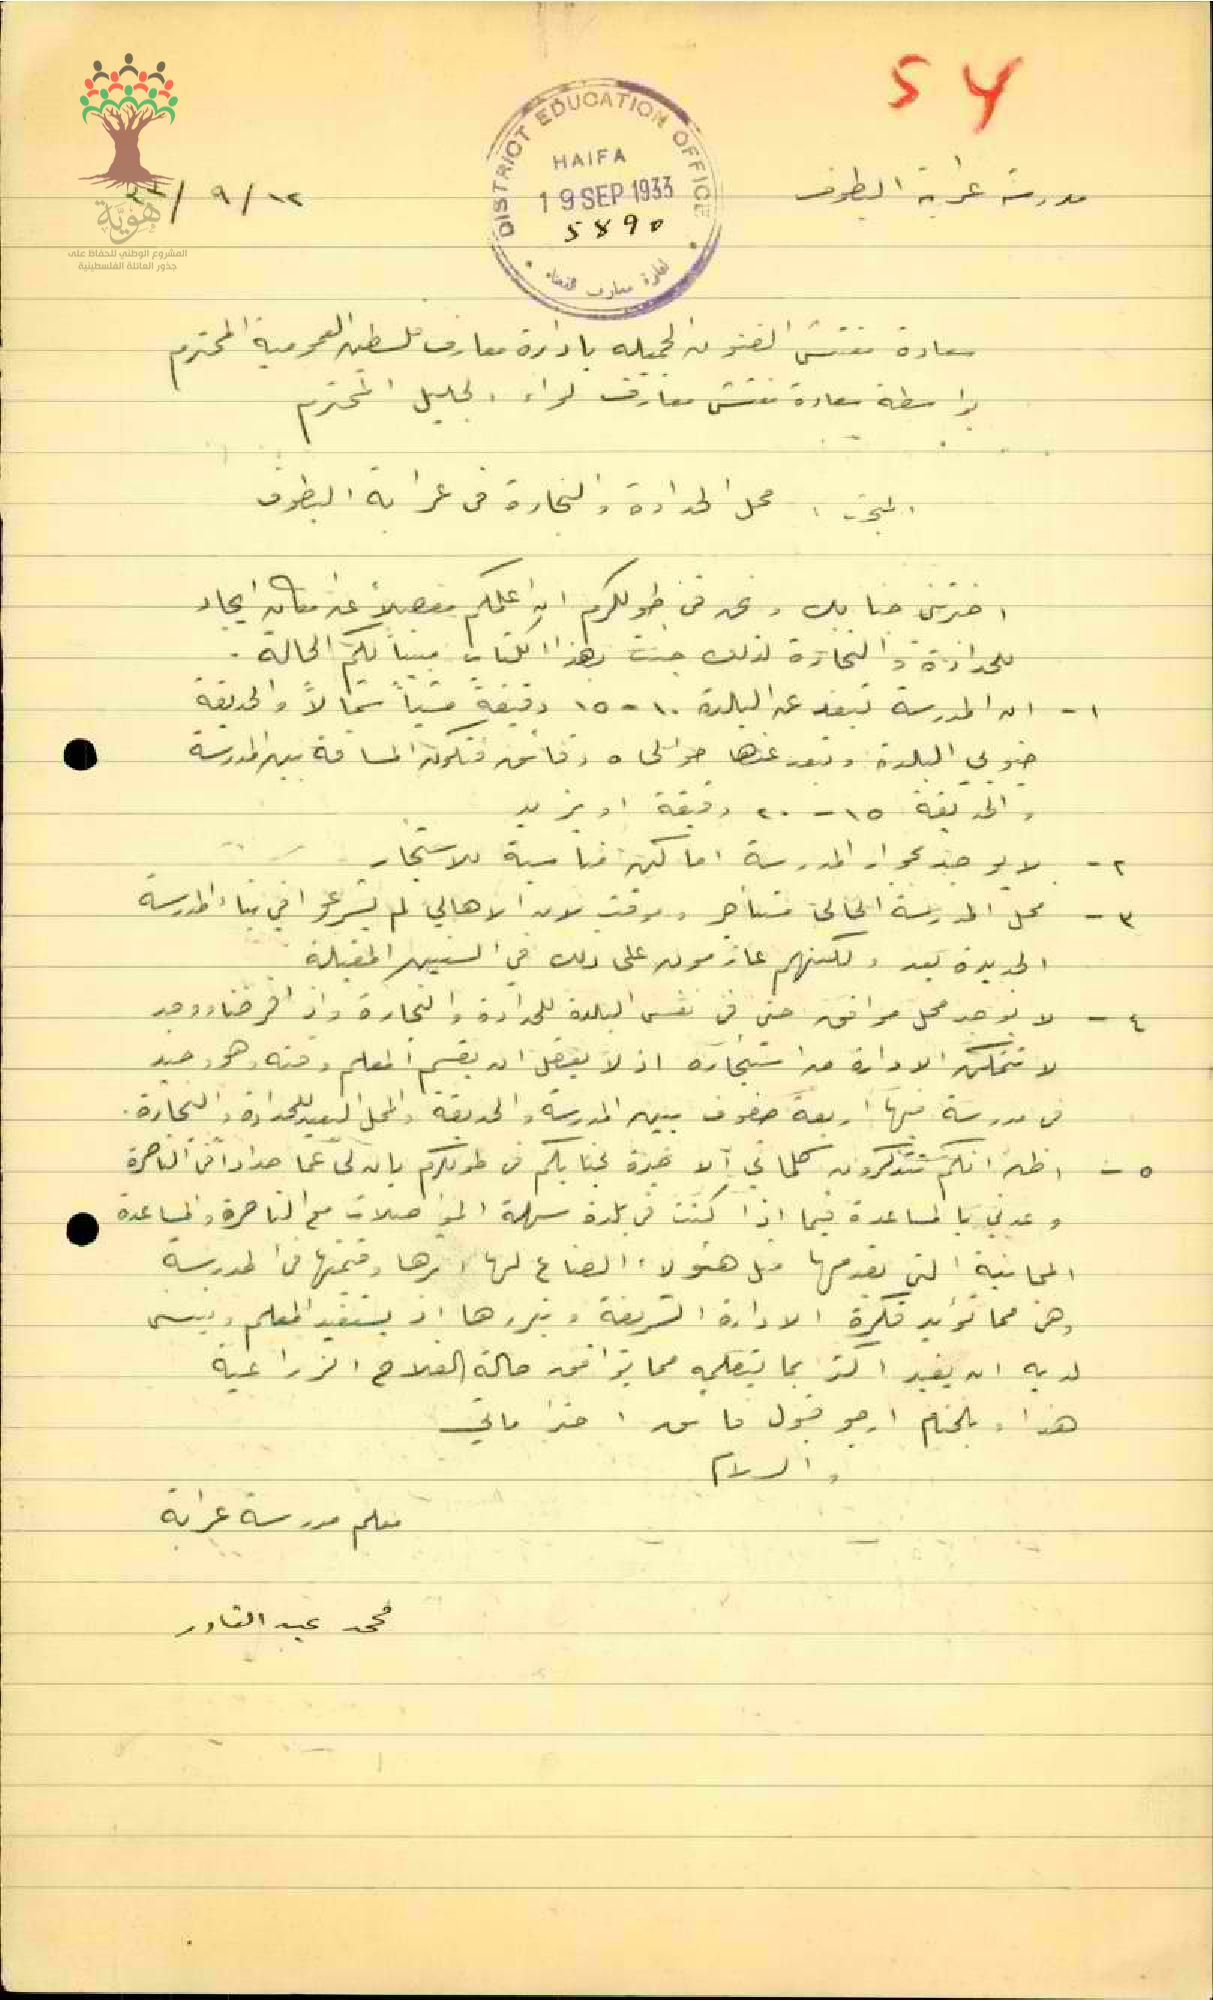 54
DISTRICT EDUCATION OFFICE
HAIFA
19 SEP 1933
5890
هوية
المشروع الوطني للحفاظ على
جذور العائلة الفلسطينية
مدرسة عرابة البطوف
١٢/٩/
سعادة مفتش الفنون الجميله بادارة معارف فلسطين العمومية المحترم
بواسطة سعادة مفتش معارف لواء الجليل المحترم
المبحث: محل الحدادة والنجارة في عرابة البطوف
جنابك ونحن في طولكرم ان اعلمكم مفصلاً عن مكان ايجاد
للحدادة والنجارة لذلك جئت بهذا الكتاب مبيناً لكم الحالة.
١ـ ان المدرسة تبعد عن البلدة ١٠ـ١٥ دقيقة مشياً شمالاً والحديقة
جنوبي البلدة وتبعد عنها حوالي ٥ دقائق فتكون المسافة بين المدرسة
والحديقة ١٥ـ٢٠ دقيقة او يزيد
٢ـ لا يوجد بجوار المدرسة اماكن مناسبة للاستئجار
٣ـ محل المدرسة الحالي مستأجر وموقت لان الاهالي لم يشرعوا في بناء المدرسة
الجديدة بعد ولكنهم عازمون على ذلك في السنين المقبلة
٤ـ لا يوجد محل موافق حتى في نفس البلدة للحدادة والنجارة واذا فرضنا ووجد
لا تتمكن الادارة من استئجاره اذ لا يعقل ان يقسم المعلم وقته وهو وحيد
في مدرسة فيها اربعة صفوف بين المدرسة والحديقة والمحل البعيد للحدادة والنجارة.
٥ـ اظن انكم تتذكرون كلماتي الاخيرة لجنابكم في طولكرم بان لي عما حداداً في الناصرة
وعدني بالمساعدة فيما اذا كنت في بلدة سهلة المواصلات مع الناصرة والمساعدة
المجانية التي يقدمها مثل هؤلاء الصناع لها اثرها وقيمتها في المدرسة
وهي مما تؤيد فكرة الادارة الشريفة وتبررها اذ يستفيد المعلم ويتسنى
لديه ان يفيد اكثر بما يتعلمه مما يوافق حالة الفلاح الزراعية
هذا وبالختام ارجو قبول فائق احتراماتي
والسلام
معلم مدرسة عرابة
محمد عبد القادر